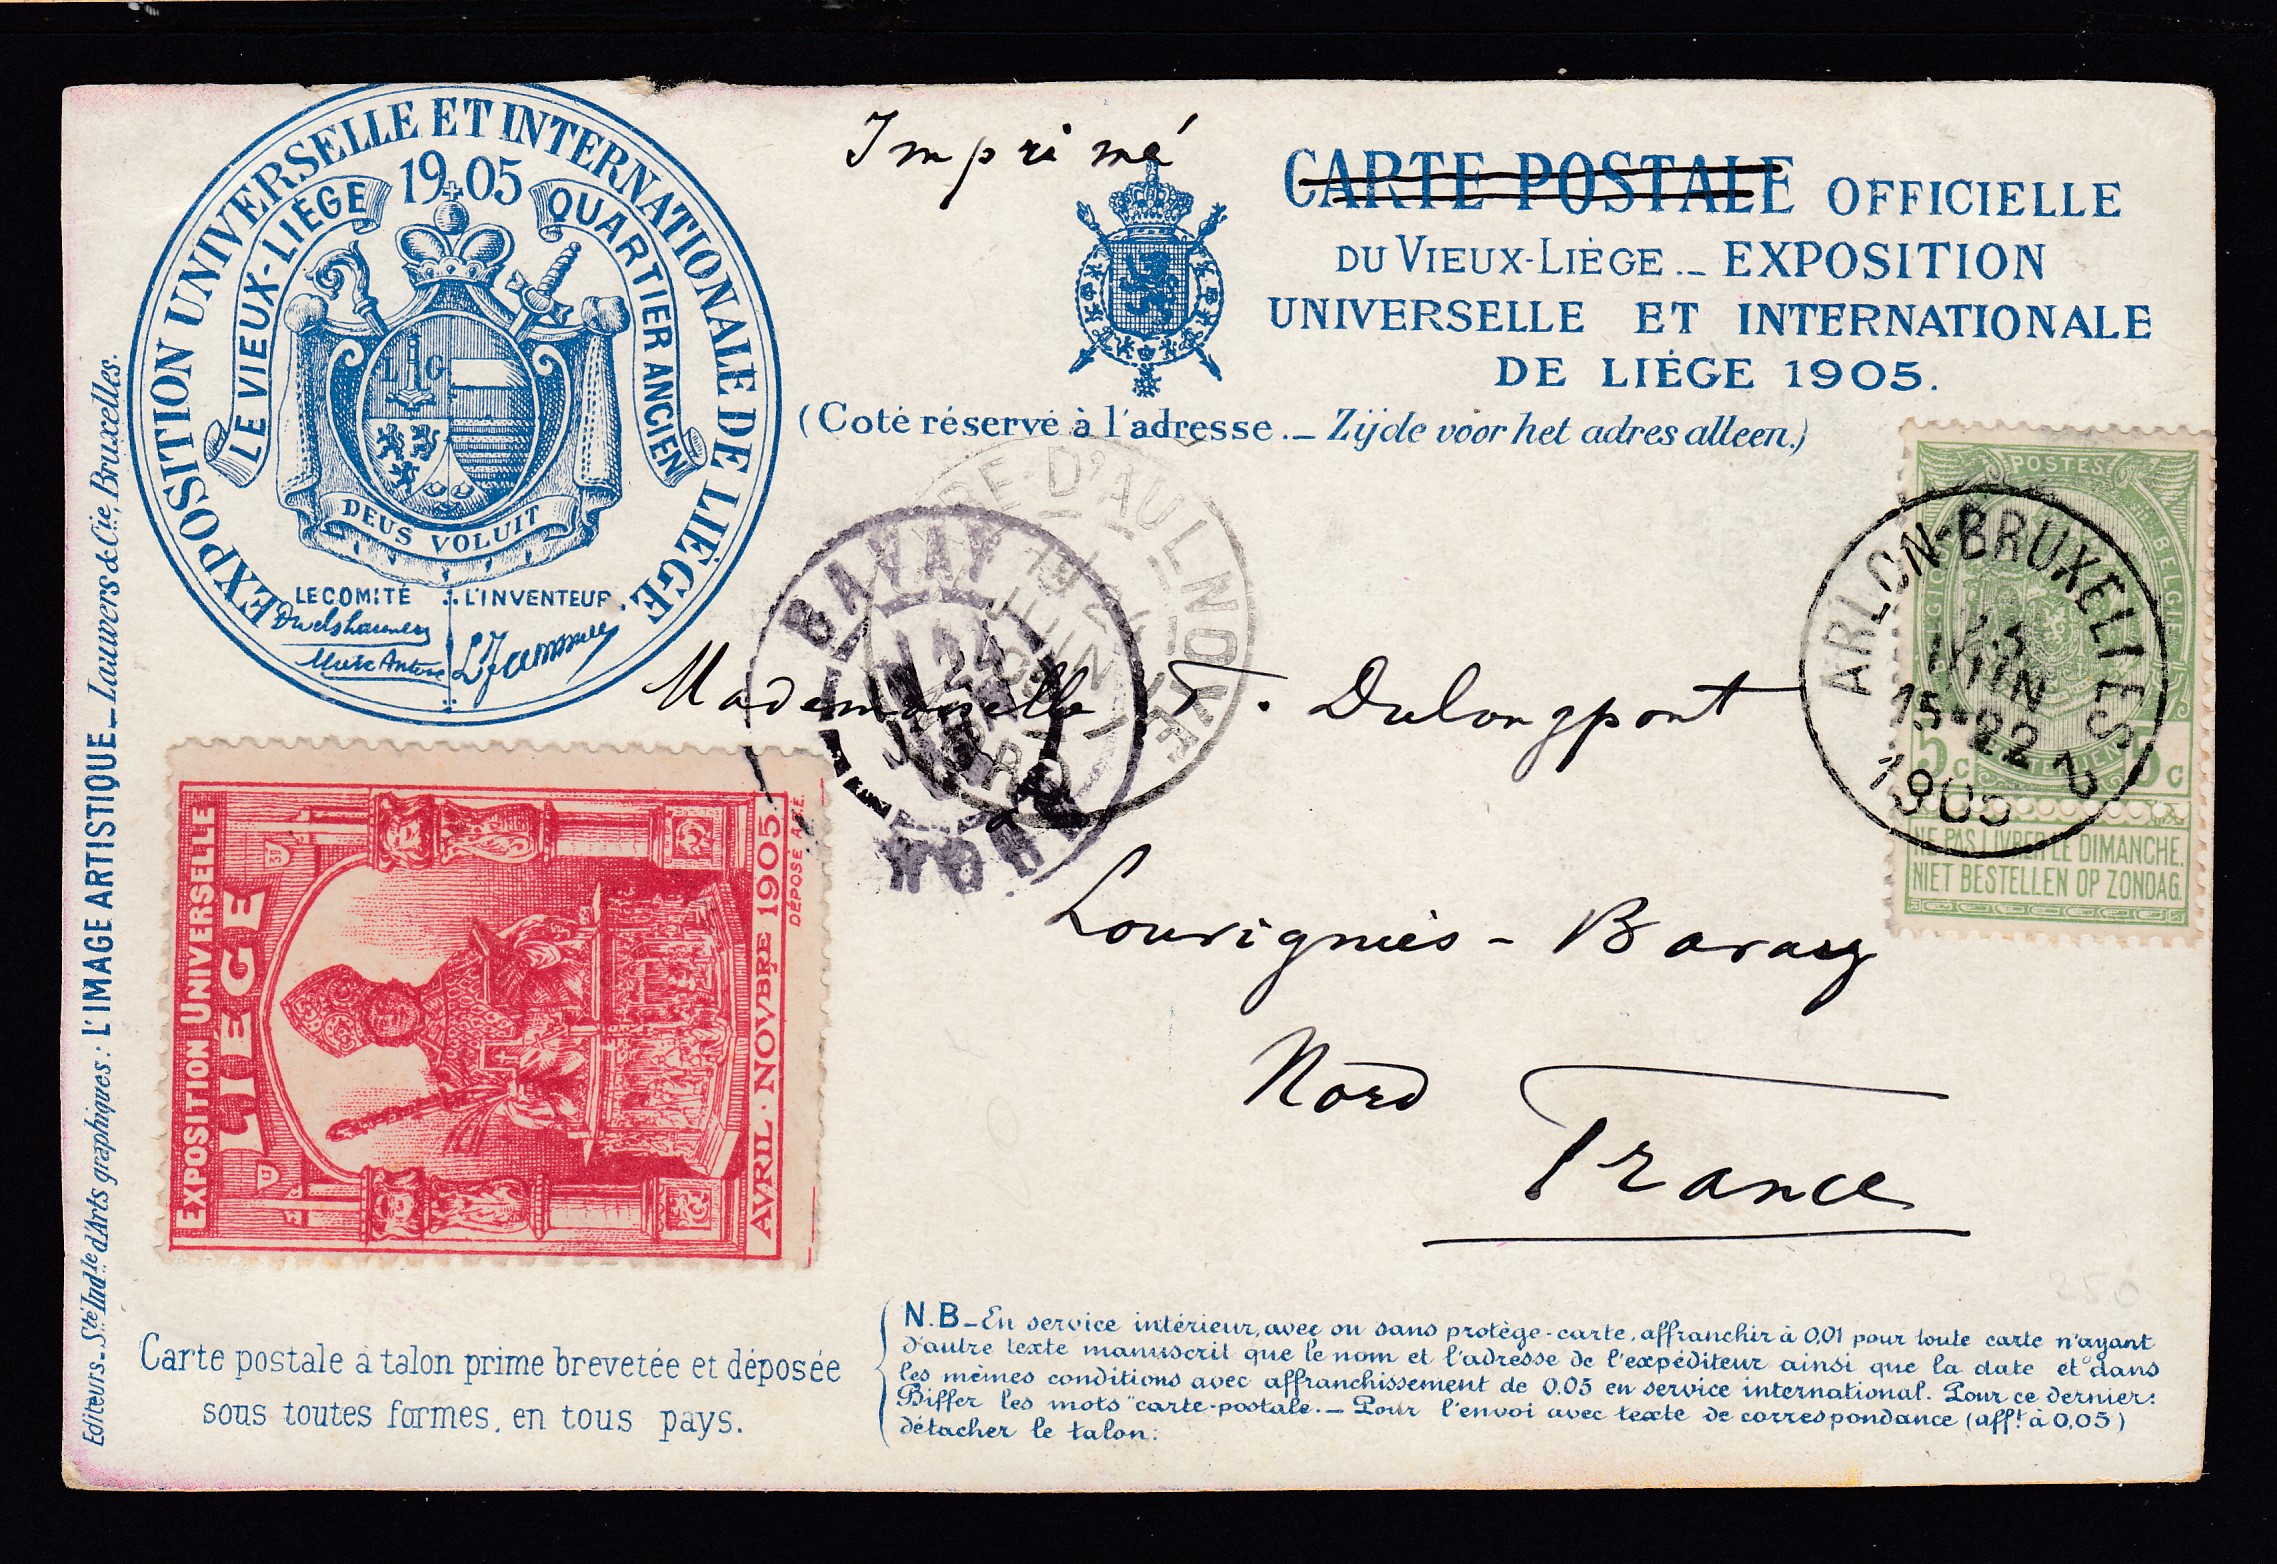 EXPOSITION UNIVERSELLE ET INTERNATIONALE DE LIÈGE
1905
LE VIEUX-LIÈGE QUARTIER ANCIEN
L G
DEUS VOLUIT
LE COMITÉ L'INVENTEUR.
Imprimé
CARTE POSTALE OFFICIELLE
DU VIEUX-LIÈGE._ EXPOSITION
UNIVERSELLE ET INTERNATIONALE
DE LIÉGE 1905.
(Coté réservé à l'adresse._ Zijde voor het adres alleen.)
POSTES
5c 5c
NE PAS LIVRER LE DIMANCHE.
NIET BESTELLEN OP ZONDAG.
ARLON-BRUXELLES 2
JUIN
15-22
1905
BAVAY
24
NORD
D'AULNOYE
JUIN
Mademoiselle F. Dulongpont
Louvignies-Bavay
Nord
France
EXPOSITION UNIVERSELLE
LIEGE
AVRIL·NOVBRE 1905
DÉPOSÉ A.E.
Editeurs_Sté Indle d'Arts graphiques: L'IMAGE ARTISTIQUE_Lauwers & Cie, Bruxelles.
Carte postale à talon prime brevetée et déposée
sous toutes formes, en tous pays.
N.B_En service intérieur, avec ou sans protège-carte, affranchir à 0,01 pour toute carte n'ayant
d'autre texte manuscrit que le nom et l'adresse de l'expéditeur ainsi que la date et dans
les mêmes conditions avec affranchissement de 0.05 en service international. Pour ce dernier:
Biffer les mots "carte-postale._ Pour l'envoi avec texte de correspondance (afft à 0,05)
détacher le talon:
250